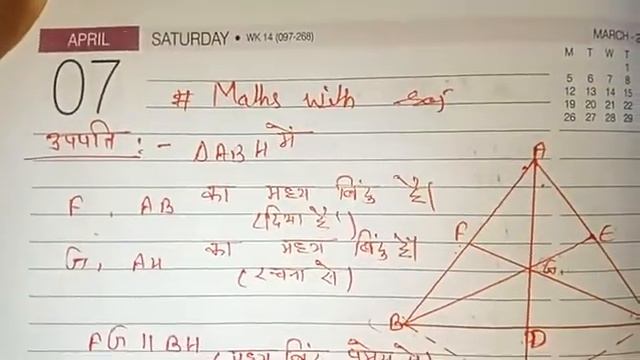 APRIL
SATURDAY • WK 14 (097-268)
MARCH-2
M T W T
1
5 6 7 8
12 13 14 15
19 20 21 22
26 27 28 29
07
# Maths with
उपपति :-
ΔABH में
F, AB का मध्य बिंदु है।
(दिया है।)
G, AH का मध्य बिंदु है।
(रचना से)
FG || BH
(मध्य बिंदु प्रमेय से)
A
F
E
G
B
D